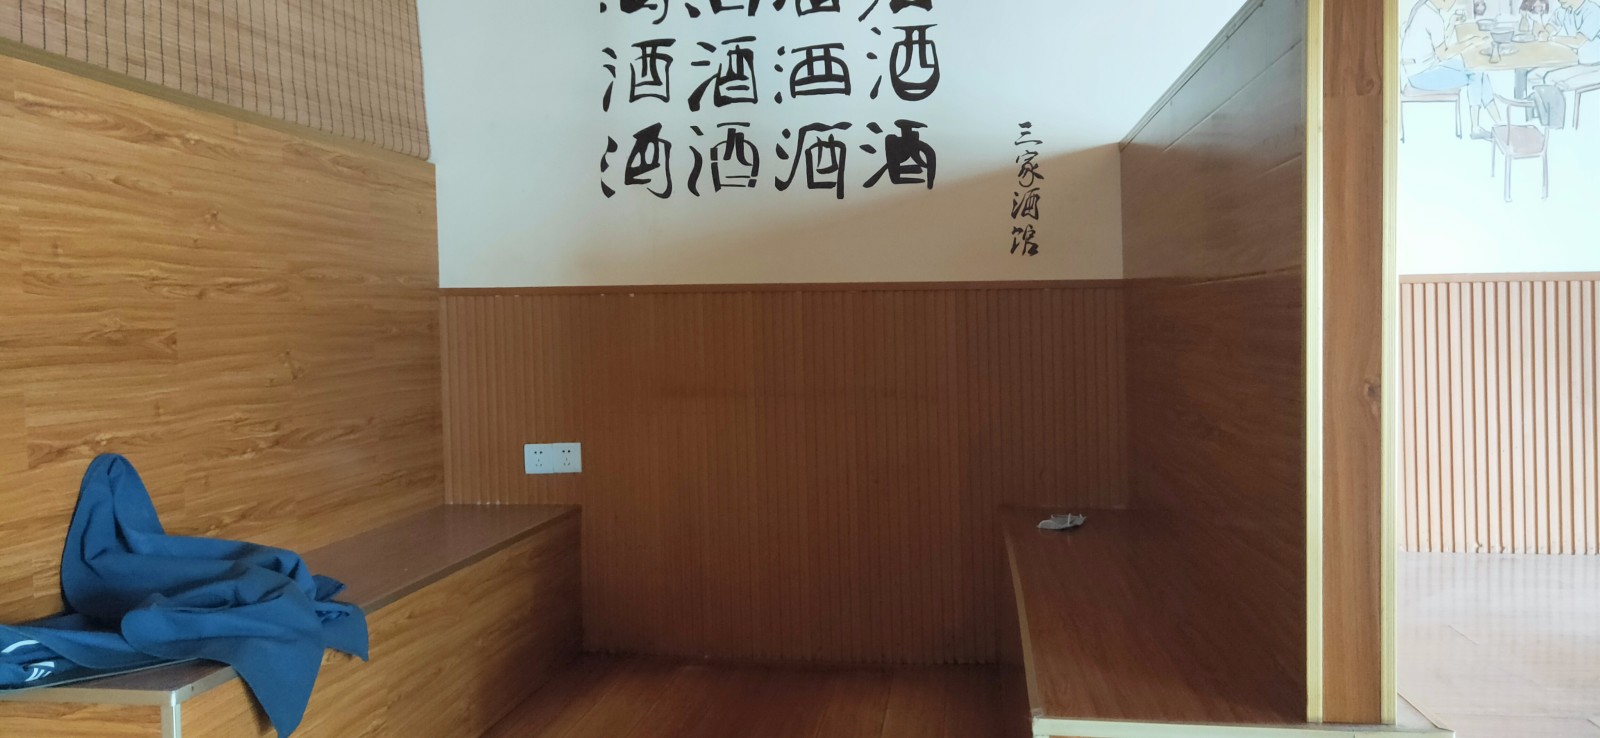 酒酒酒酒
酒酒酒酒
酒酒酒酒
三家酒馆